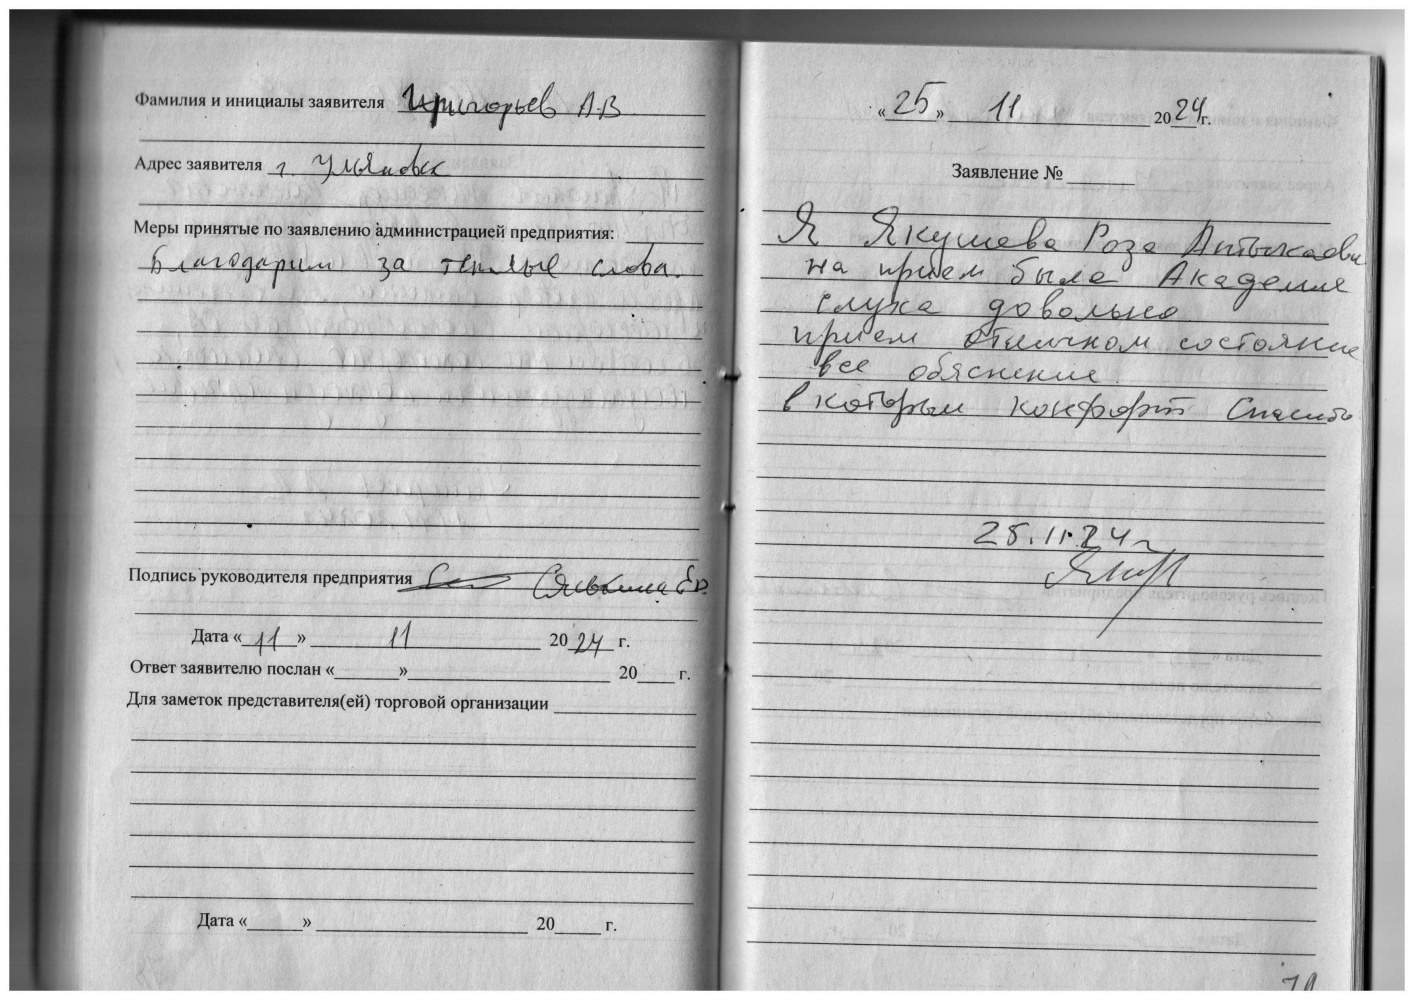 Фамилия и инициалы заявителя Григорьев А.В
Адрес заявителя г. Ульяновск
Меры принятые по заявлению администрацией предприятия:
Благодарим за теплые слова.
Подпись руководителя предприятия
Дата «11» 11 2024 г.
Ответ заявителю послан «» 20 г.
Для заметок представителя(ей) торговой организации
Дата «» 20 г.
«25» 11 2024г.
Заявление №
Я Якушева Роза
на прием была Академие
слуха довольно
прием отличном состояние
все обяснение
в которым конфорт Спасибо
25.11.24г